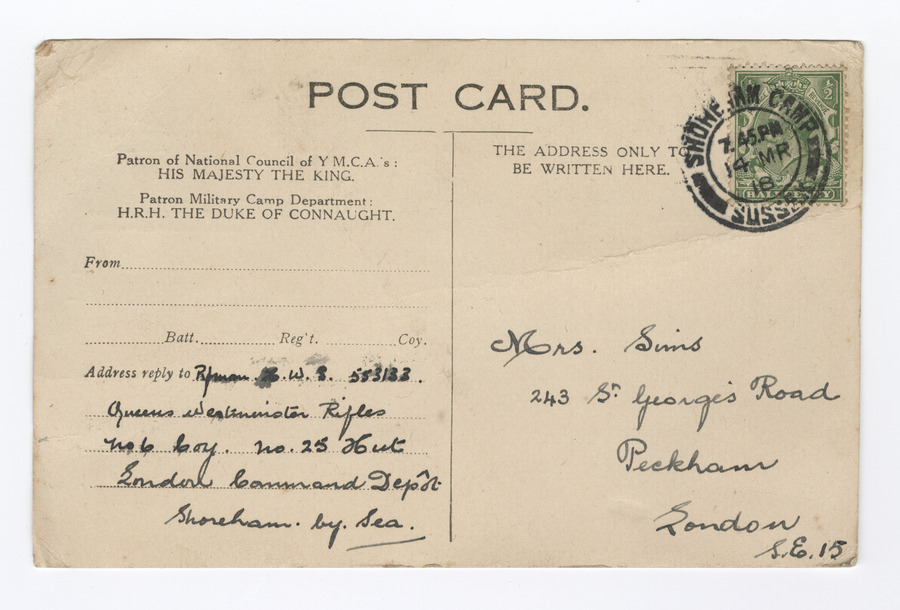 POST CARD.
Patron of National Council of Y M.C.A.'s:
HIS MAJESTY THE KING.
Patron Military Camp Department:
H.R.H. THE DUKE OF CONNAUGHT.
From
Batt. Reg't. Coy.
Address reply to W. S. 553133.
Queens Westminster Rifles
No 6 Coy. No. 25 Hut
London Command Depôt
Shoreham. by. Sea.
THE ADDRESS ONLY TO
BE WRITTEN HERE.
SHOREHAM CAMP
7.45 PM
14 MR
18
SUSSEX
HALFPENNY
Mrs. Sims
243 St Georges Road
Peckham
London
S.E.15